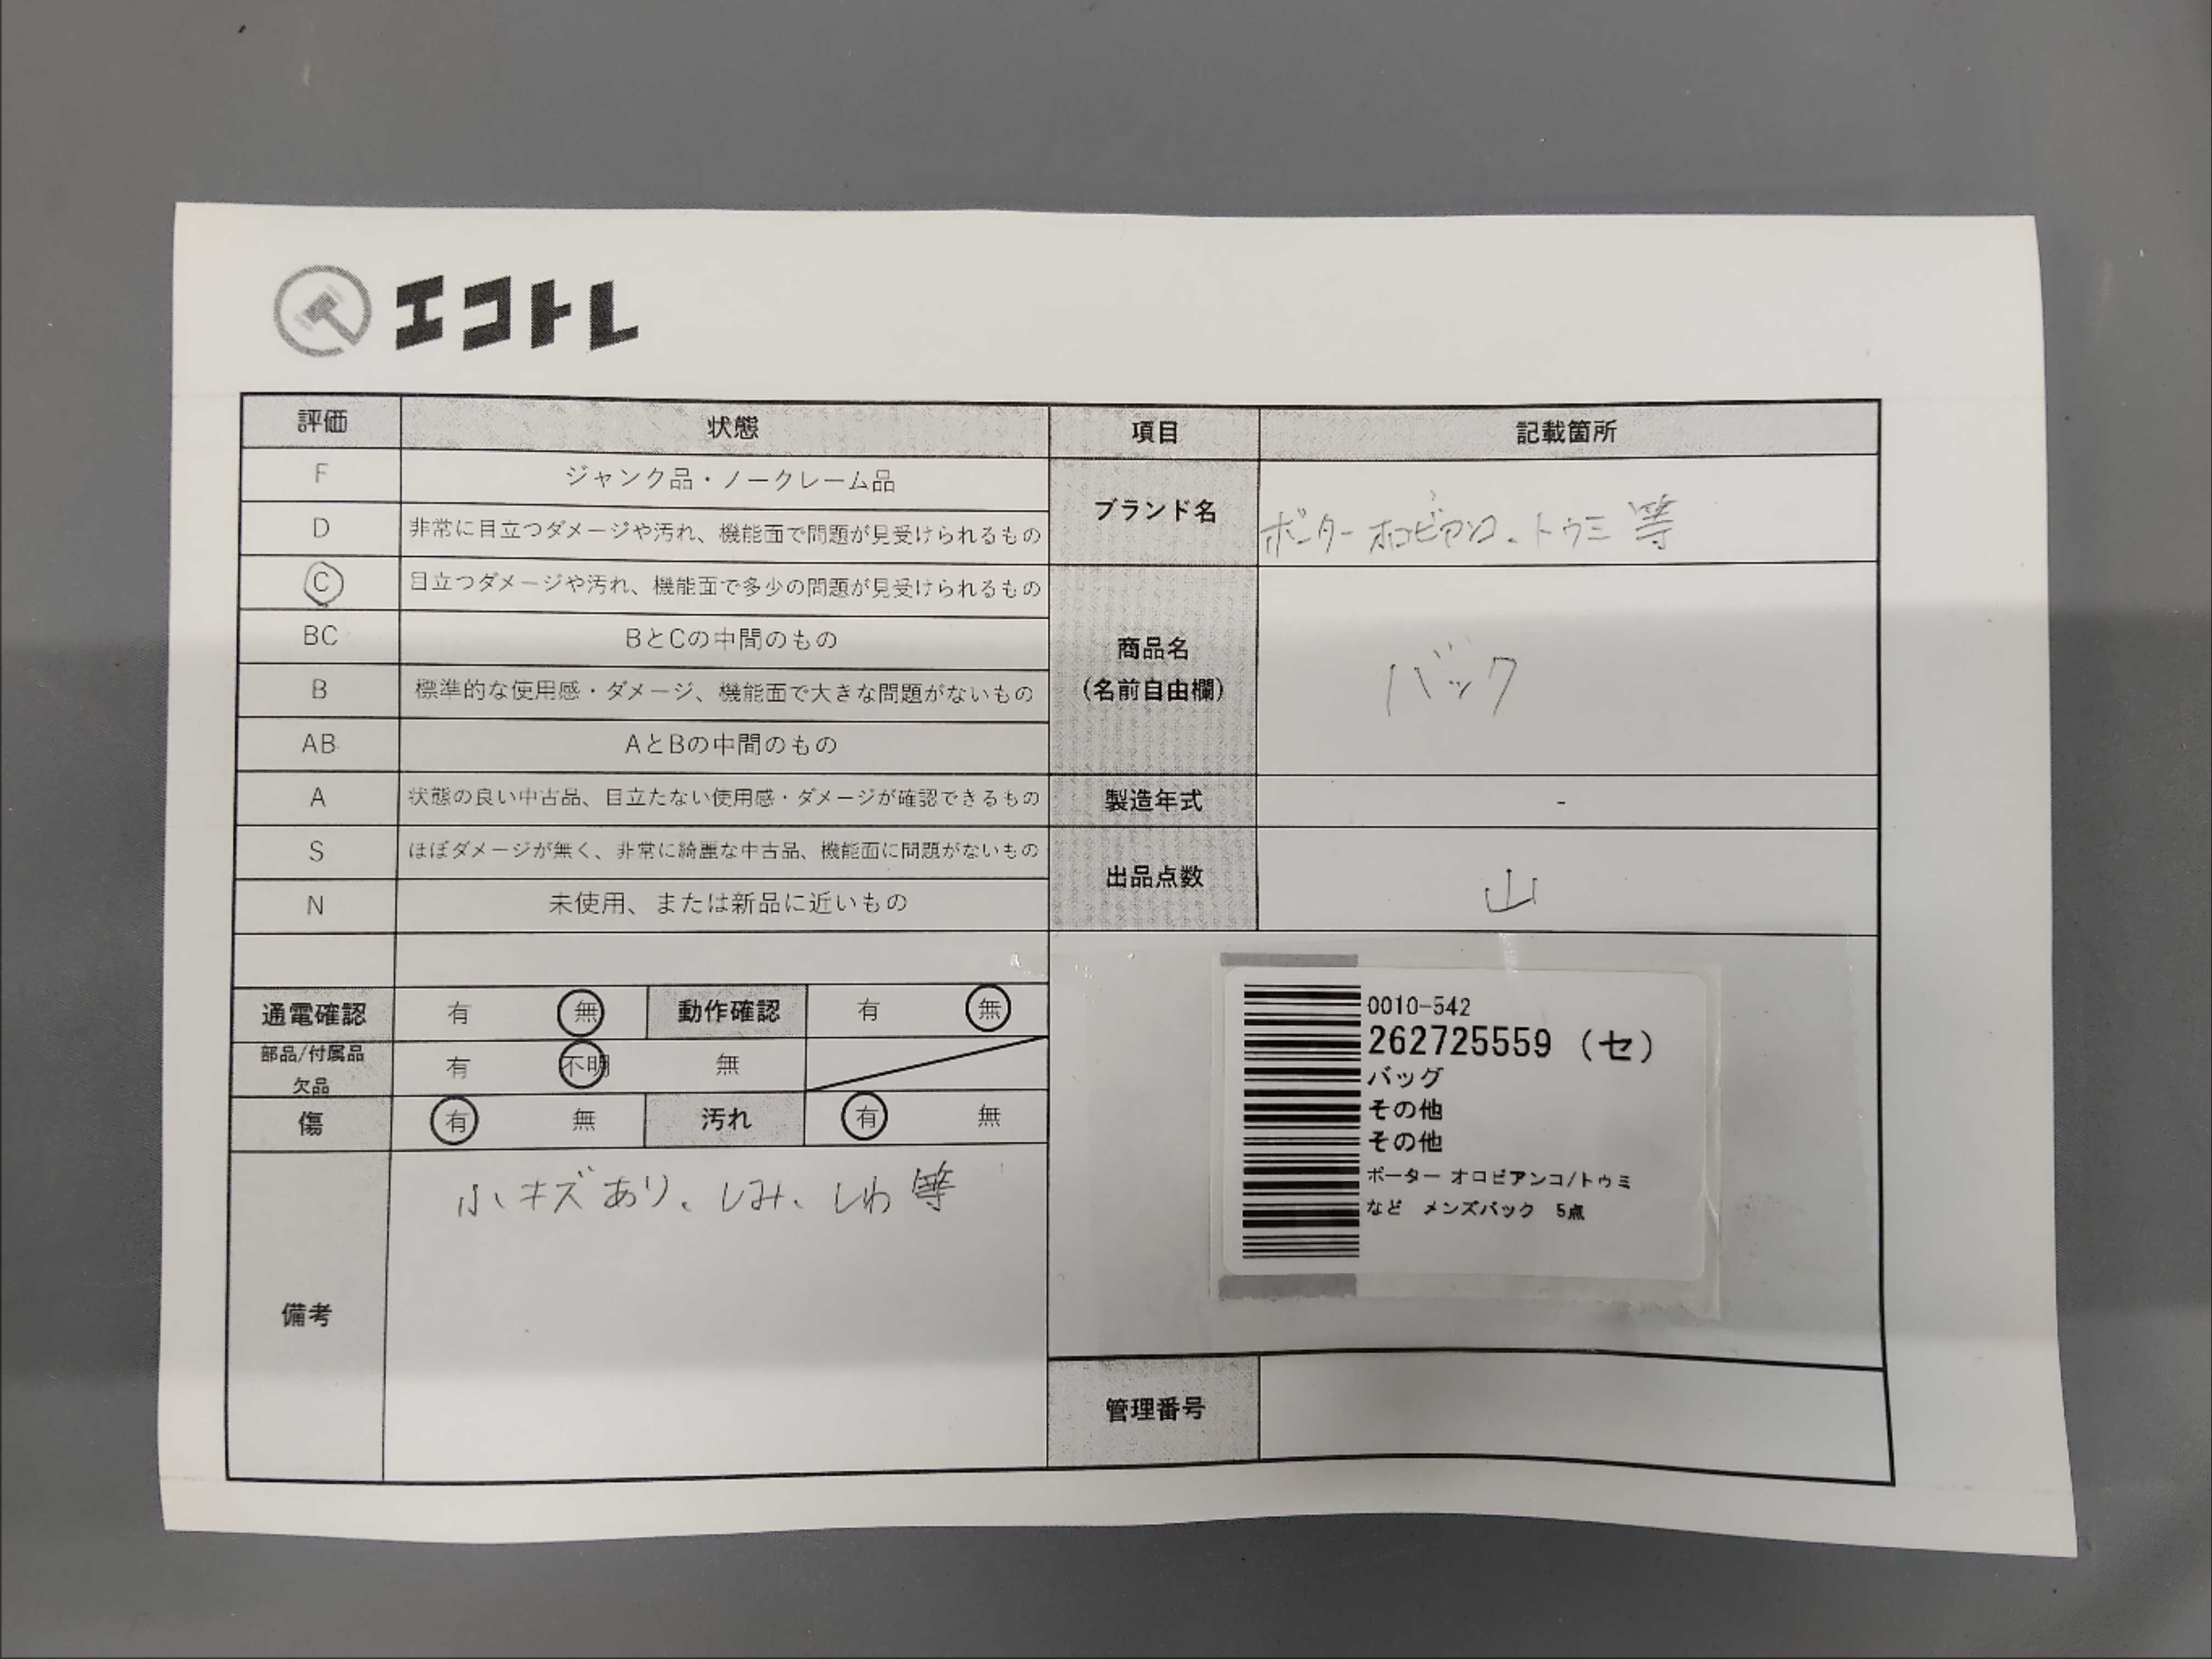 エコトレ
評価 状態 項目 記載箇所
F ジャンク品・ノークレーム品
D 非常に目立つダメージや汚れ、機能面で問題が見受けられるもの
ブランド名 ポーター オロビアンコ、トゥミ 等
C 目立つダメージや汚れ、機能面で多少の問題が見受けられるもの
BC BとCの中間のもの
商品名
(名前自由欄)
バック
B 標準的な使用感・ダメージ、機能面で大きな問題がないもの
AB AとBの中間のもの
A 状態の良い中古品、目立たない使用感・ダメージが確認できるもの
製造年式 -
S ほぼダメージが無く、非常に綺麗な中古品、機能面に問題がないもの
出品点数 山
N 未使用、または新品に近いもの
通電確認 有 無 動作確認 有 無
部品/付属品
欠品
有 不明 無
傷 有 無 汚れ 有 無
備考
小キズあり、しみ、しわ 等
0010-542
262725559 (セ)
バッグ
その他
その他
ポーター オロビアンコ/トゥミ
など メンズバック 5点
管理番号